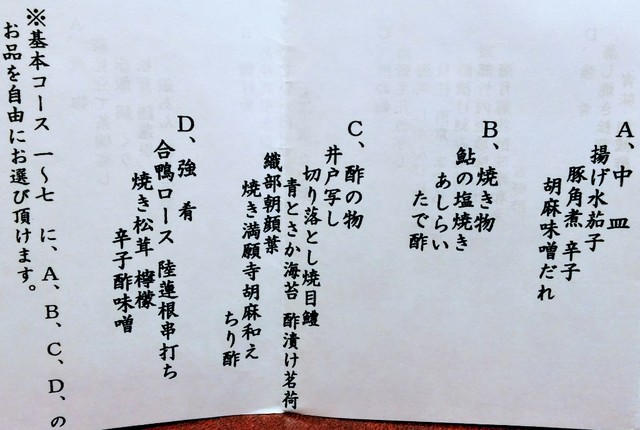 A、中皿
揚げ水茄子
豚角煮 辛子
胡麻味噌だれ
B、焼き物
鮎の塩焼き
あしらい
たで酢
C、酢の物
井戸写し
切り落とし焼目鱧
青とさか海苔 酢漬け茗荷
織部朝顔葉
焼き満願寺胡麻和え
ちり酢
D、強肴
合鴨ロース 陸蓮根串打ち
焼き松茸 檸檬
辛子酢味噌
※基本コース 一~七 に、A、B、C、D、の
お品を自由にお選び頂けます。